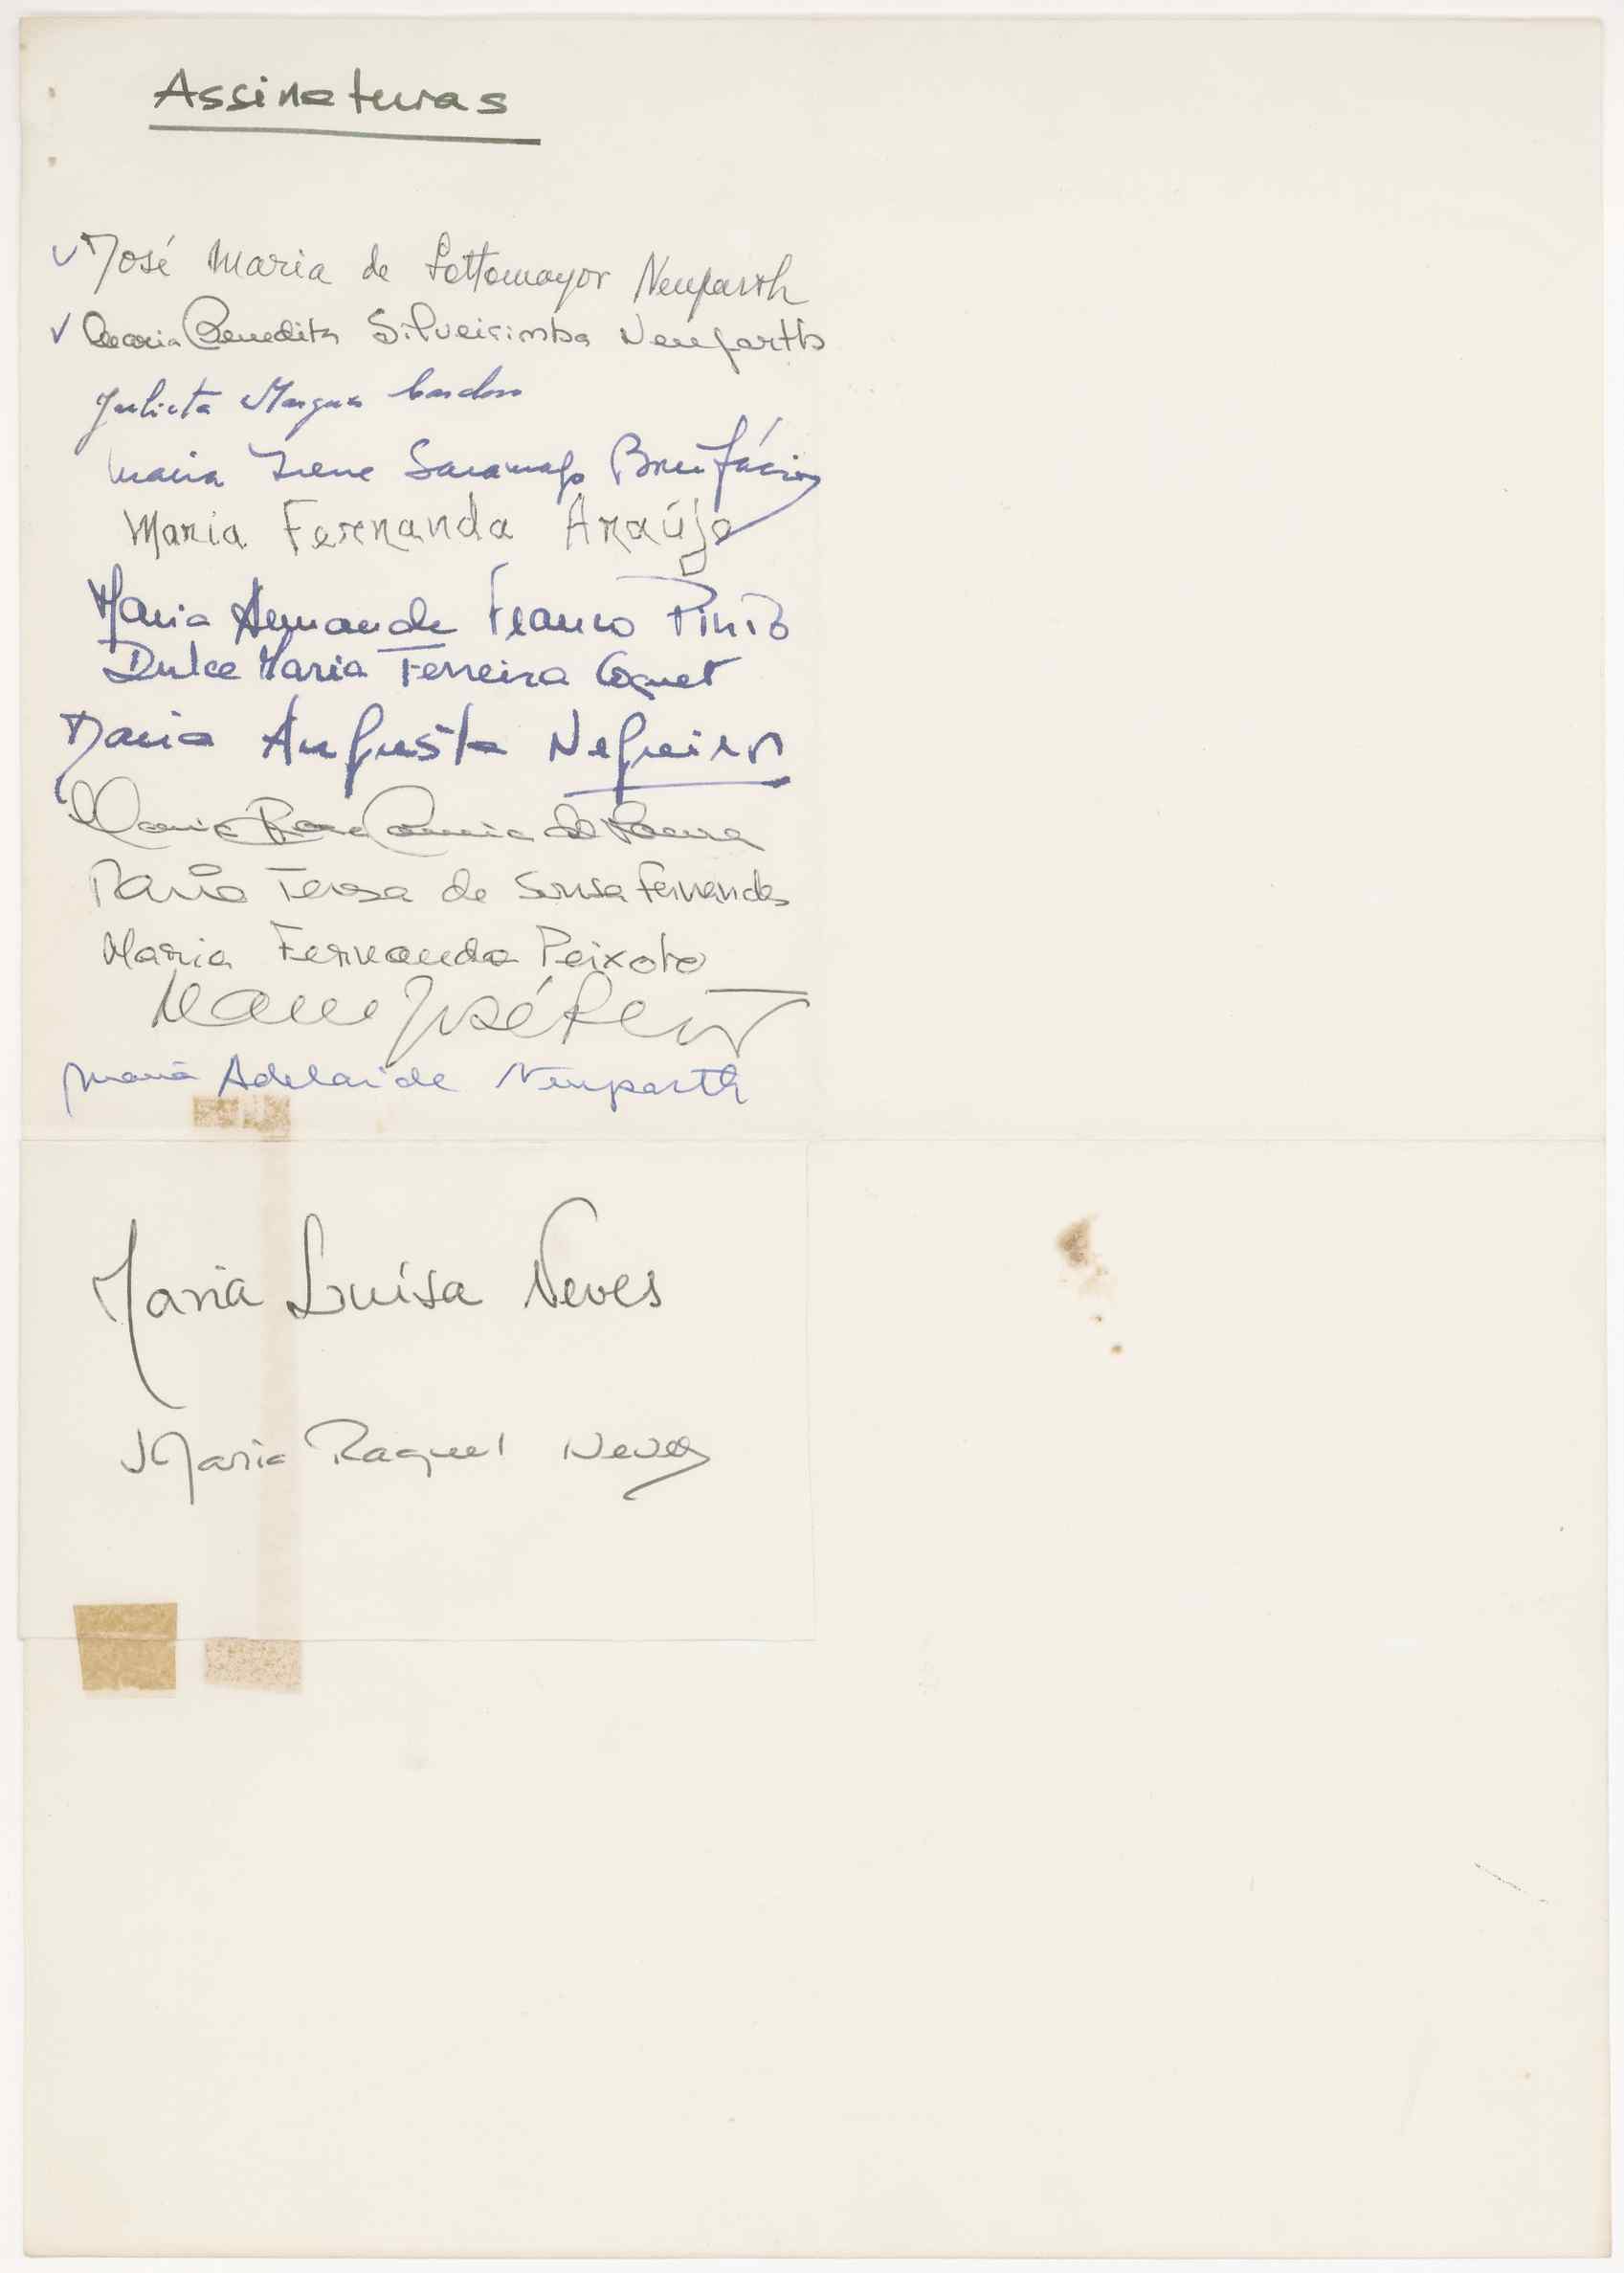 Assinaturas
José Maria de Sottomayor Neuparth
Maria Benedita Silveirinha Neuparth
Julieta Marques Cardoso
Maria Irene Saramago Bonifácio
Maria Fernanda Araújo
Maria Armanda Franco Pinto
Dulce Maria Ferreira Coquet
Maria Augusta Negreiros
Maria Rosa Correia de
Maria Teresa de Sousa Fernandes
Maria Fernanda Peixoto
José
Maria Adelaide Neuparth
Maria Luísa Neves
Maria Raquel Neves